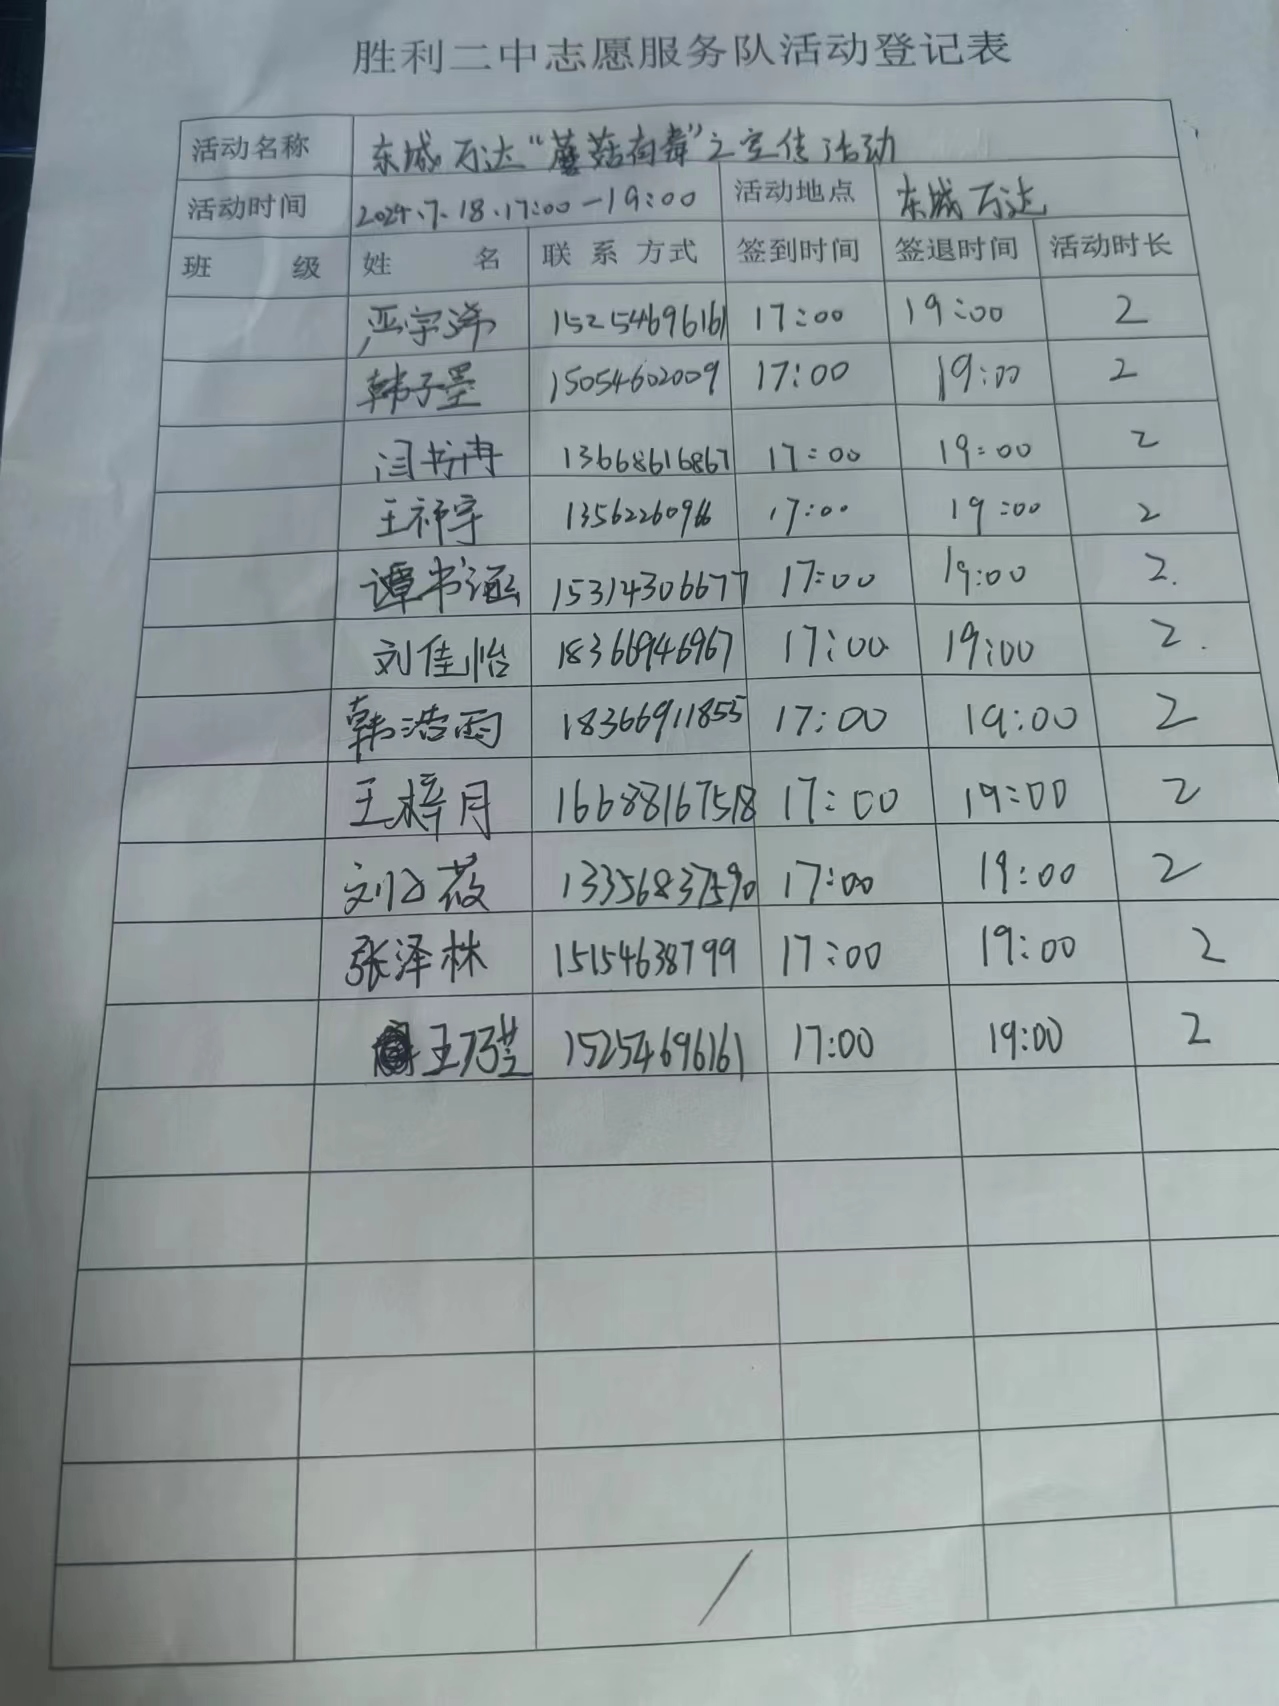 胜利二中志愿服务队活动登记表
活动名称 东城万达“蘑菇有毒”之宣传活动
活动时间 2024.7.18.17:00—19:00 活动地点 东城万达
班 级 姓 名 联系方式 签到时间 签退时间 活动时长
严宇泽 15254696161 17:00 19:00 2
韩子墨 15054602009 17:00 19:00 2
闫书冉 13668616867 17:00 19:00 2
王祥宇 1356226096 17:00 19:00 2
谭书涵 15314306677 17:00 19:00 2.
刘佳怡 18366946967 17:00 19:00 2.
韩浩雨 18366911855 17:00 19:00 2
王梓月 16688167518 17:00 19:00 2
刘 筱 13356837590 17:00 19:00 2
张泽林 15154638799 17:00 19:00 2
王乃 15254696161 17:00 19:00 2